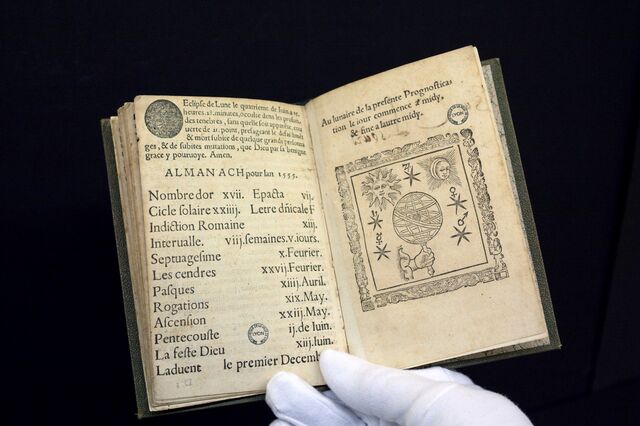 Eclipse de Lune le quatrieme de Iuin, a 14.
heures. 21. minutes, occulte dans les profon.
des tenebres, sans quelle soit apparēte, cou
uerte de 21. point, presageant le desia humés
& mort subite de quelque grands personna
ges, & de subites mutation, que Dieu par sa benigne
grace y pouruoye. Amen.
ALMANACH pour lan 1555.
Nombre dor xvii. Epacta vij.
Cicle solaire xxiiij. Letre dñicale F
Indiction Romaine xiij.
Interualle. viij. semaines. v. iours.
Septuagesime x. Feurier.
Les cendres xxvij. Feurier.
Pasques xiiij. Auril.
Rogations xix. May.
Ascension xxiij. May.
Pentecouste ij. de Iuin.
La feste Dieu xiij. Iuin.
Laduent le premier Decemb
LYON
Au lunaire de la presente Prognostica-
tion le iour commence a midy,
& fine a lautre midy.
LYON